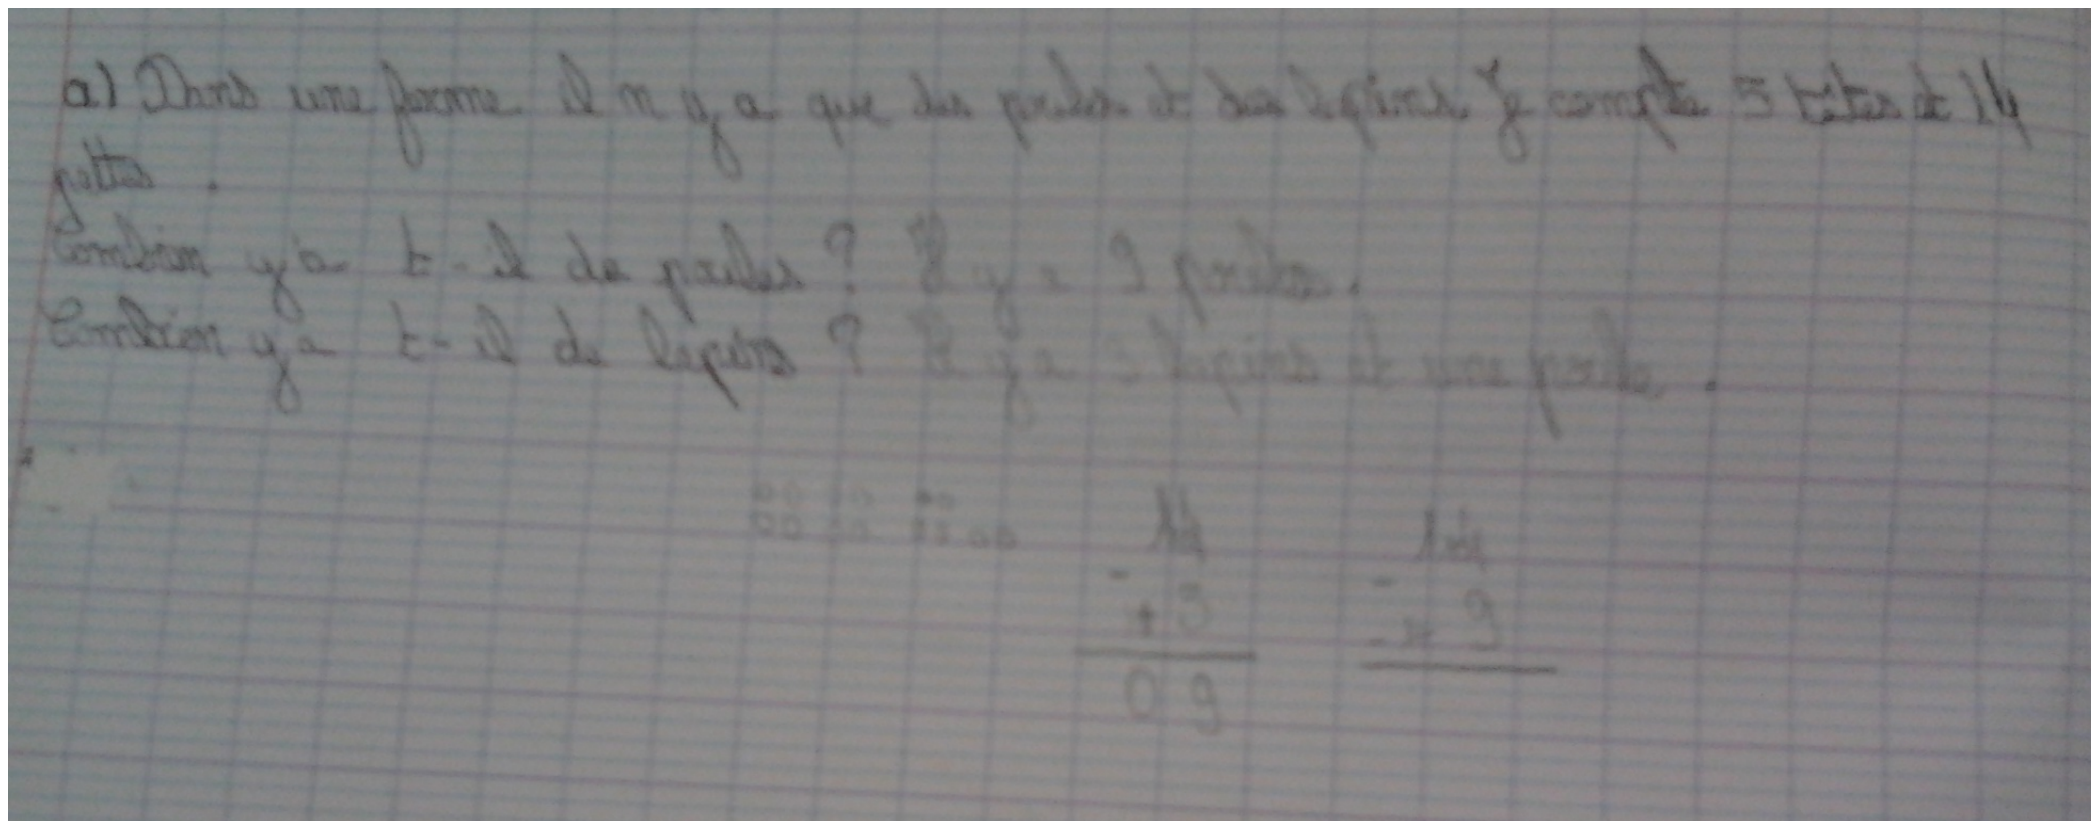 a) Dans une ferme il n y a que des poules et des lapins Je compte 5 têtes et 14
pattes .
Combien y a t-il de poules ? Il y a 9 poules.
Combien y a t-il de lapins ? Il y a 3 lapins et une poule.
14
-
+ 5
0 9
-
9